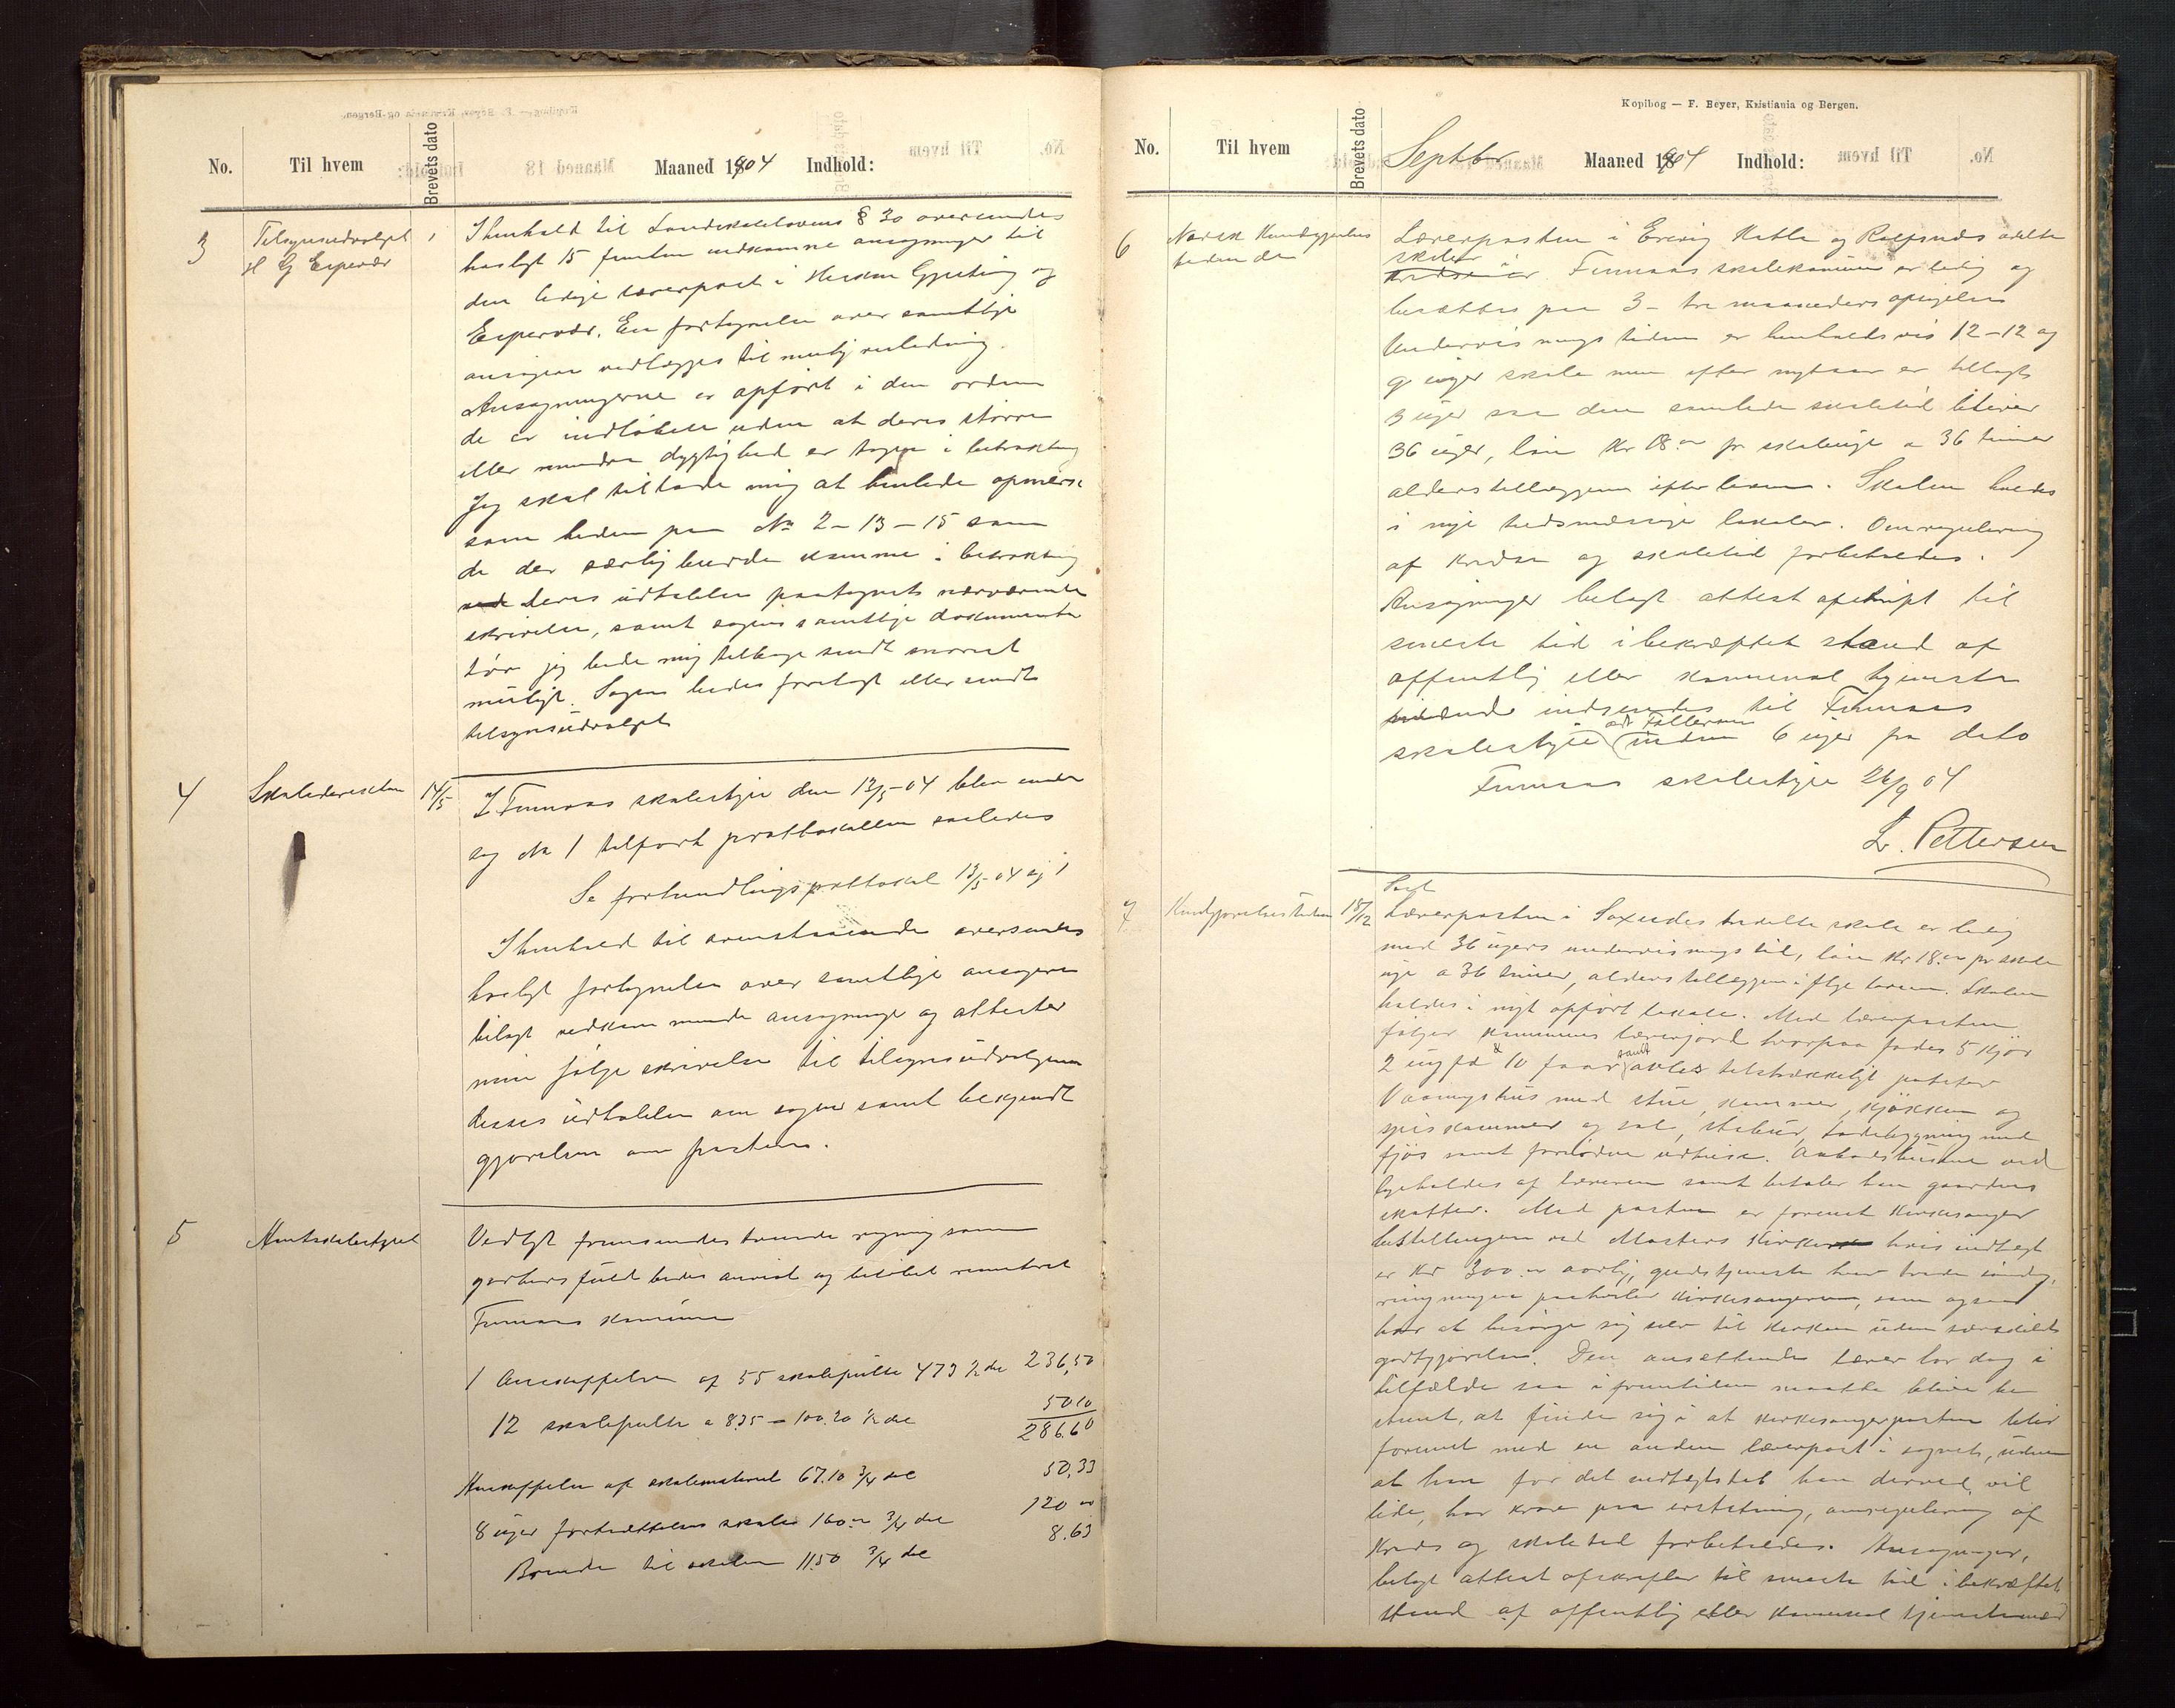 No. Til hvem Brevets dato Maaned 1904 Indhold:
3 Tilsynsudvalget
H G Espevær
I henhold til Landskolelovens § 30 oversendes
høfligt 15 femten indkomne ansøgninger til
den ledige lærerpost i
Espevær. En fortegnelse over samtlige
ansøgere vedlægges til mulig veiledning.
Ansøgningerne er opført i den orden
de er indløbne uden at deres større
eller mindre dygtighed er tagen i betraktning
Jeg skal tillade mig at henlede opmerk
som heden paa No 2-13-15 som
de der særlig burde komme i betraktning
deres udtalelse paategnet nærværende
skrivelse, samt sagens samtlige dokumenter
tør jeg bede mig tilbage sendt snarest
muligt. Sagen bedes forelagt eller sendt
tilsynsudvalget
4 Skoledirektøren 14/5 I Finnaas skolestyre den 13/5-04 blev under
sag No 1 tilført prottokollen saaledes
Se forhandlingsprottokol 13/5-04 sag 1
I henhold til ovenstaaende oversendes
høfligt fortegnelse over samtlige ansøgere
bilagt vedkommende ansøgninge og attester
min følge skrivelse til tilsynsudvalgene
disses udtalelse om sagen samt bekjendt
gjørelsen om posten.
5 Amtskolestyret Vedlagt fremsendes regning som
godhedsfuld bedes anvist og beløbet remitteret
Finnaas kommune
1 Anskaffelse af 55 skolepulte 473 ½ del 236,50
12 skolepulte a 835 – 100.20 ½ del 5010
286.60
Anskaffelse af skolemateriel 67.10 ¾ del 50,33
8 uger fortsættelses skole 160.- ¾ del 120 -
Brænde til skolen 11.50 ¾ del 8.63
Kopibog — F. Beyer, Kristiania og Bergen.
No. Til hvem Brevets dato Septbr Maaned 1904 Indhold:
6 Norsk Kundgjørelses
tidende
Lærerposten i Eering Katla og Rolfsnes delte
skoler
Finnaas skolekommune er ledig og
besættes paa 3 - tre maaneders opsigelse
Undervisnings tiden er henholdsvis 12-12 og
9 uger skole men efter nytaar er tillagt
3 uger saa den samlede skoletid bliver
36 uger, løn Kr 18.- pr skoleuge a 36 timer
alderstillæggene efter loven. Skolen holdes
i nye tidsmæssige lokaler. Omregulering
af kredse og skoletid forbeholdes.
Ansøgninger belagt attest afskrift til
seneste tid i bekræftet stand af
offentlig eller kommunal tjeneste
mænd indsendes til Finnaas
skolestyre adr inden 6 uger fra dato
Finnaas skolestyre 26/9 04
L. Pettersen
7 Kundgjørelses Tidende 18/12 Lærerposten i Søxndes tredelte skole er ledig
med 36 ugers undervisningstid, løn Kr 18.- pr skole
uge a 36 timer, alderstillæggene i flge loven. Skolen
holdes i nyt opført lokale. Med lærerposten
følger kommunens lærerjord hvorpaa fødes 5 kjør
2 ungfæ 10 faar samt avles tilstrækkeligt poteter
Vaaningshus med stue, kammer, kjøkken og
spiskammer og sal, stabur, ladebygning med
fjøs samt fornødne udhuse. Aabodshusene ved
ligeholdes af læreren samt betaler han gaardens
skatter. Med posten er forenet kirkesanger
bestillingen ved Mosters kirke hvis indtægt
er Kr 300.- aarlig, gudstjeneste hver tredie søndag,
ringningen paahviler kirkesangeren, som ogsaa
har at besørge sig selv til kirken uden særskildt
godtgjørelse. Den ansættende lærer har dog i
tilfælde saa i fremtiden maatte blive be
stemt, at finde sig i at kirkesangerposten blir
forenet med en anden lærerpost i sognet, uden
at han for det indtægtstab han derved vil
lide, har krav paa erstatning, omregulering af
kreds og skoletid forbeholdes. Ansøgninger,
belagt attest afskrifter til seneste tid i bekræftet
stand af offentlig eller kommunal tjenestemænd